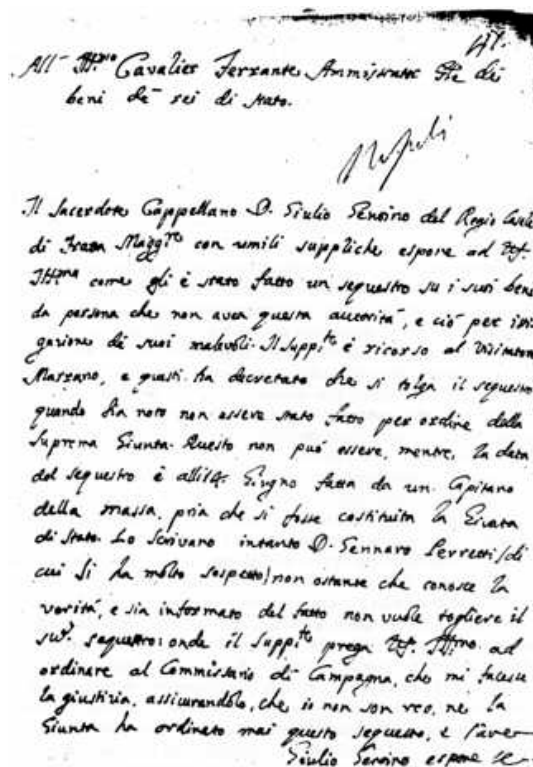 47.
All' Ill.mo Cavalier Ferrante Amministratre Gle de
beni de rei di stato.
Napoli
Il Sacerdote Cappellano D. Giulio Genoino del Regio Casale
di Fratta Magg.re con umili suppliche espone ad V.S.
Ill.ma come gli è stato fatto un sequestro su i suoi beni
da persona che non avea questa autorità, e ciò per isti-
gazione de suoi malevoli. Il Supp.te è ricorso al Visitatore
Marrano, e questi ha decretato che si tolga il sequestro
quando sia noto non essere stato fatto per ordine della
Suprema Giunta. Questo non può essere, mentre, la data
del sequestro è alli Giugno fatta da un Capitano
della massa, pria che si fosse costituita la Giunta
di Stato. Lo Scrivano intanto D. Gennaro Perretti (di
cui si ha molto sospetto) non ostante che conosce la
verità, e sia informato del fatto non vuole togliere il
sud. sequestro: onde il supp.te prega V.S. Ill.ma ad
ordinare al Commissario di Campagna, che mi facesse
la giustizia, assicurandolo, che io non son reo, ne la
Giunta ha ordinato mai questo sequestro, e l'aver
Giulio Genoino espone se